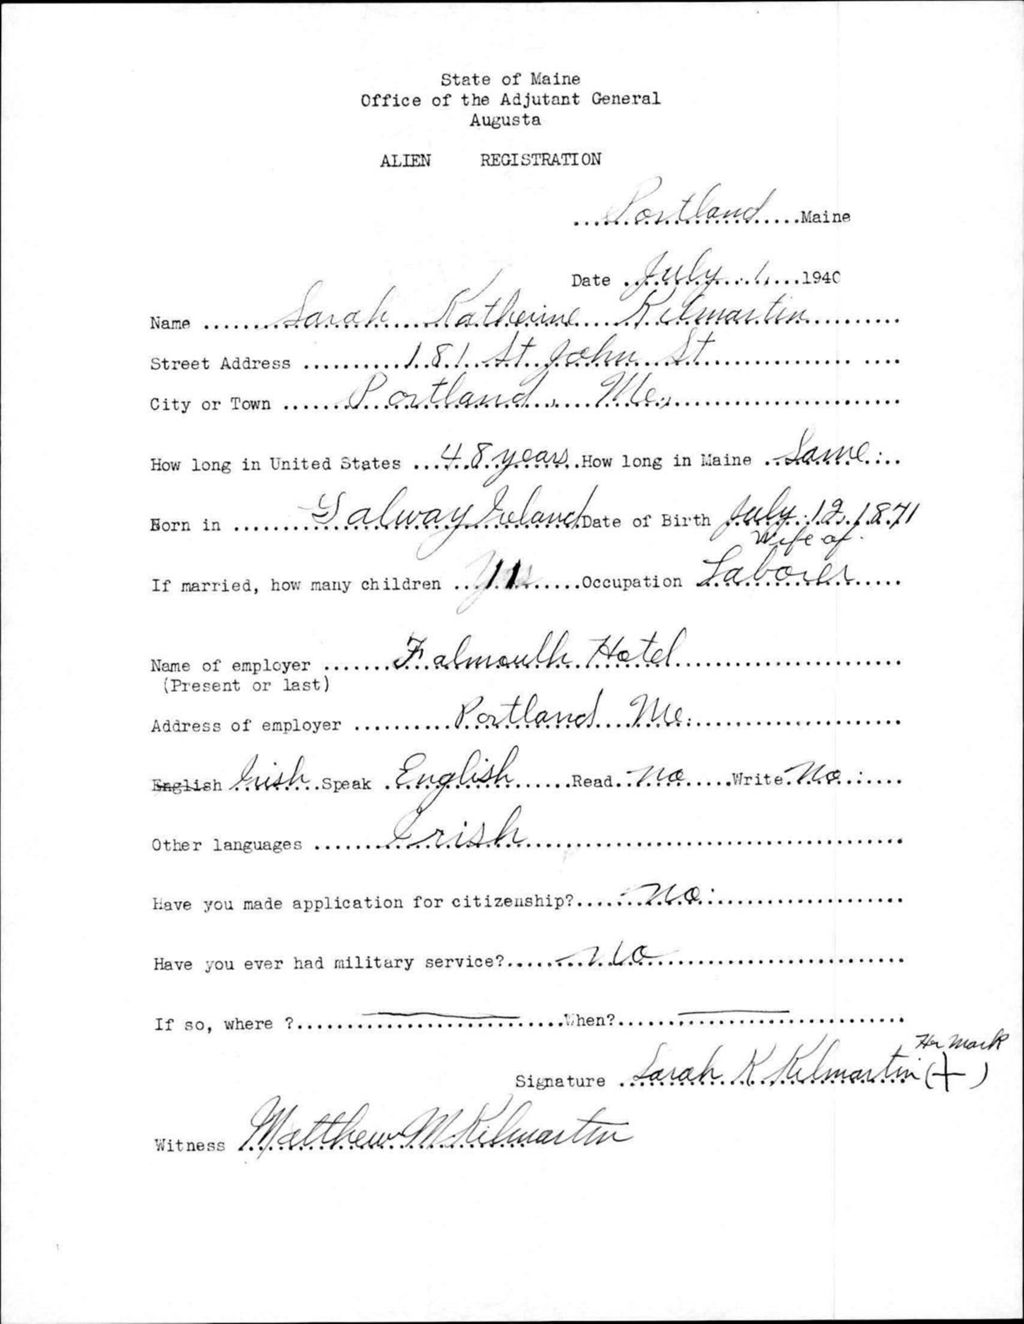 State of Maine
Office of the Adjutant General
Augusta
ALIEN REGISTRATION
Portland Maine
Date July 1, 1940
Name Sarah Katherine Kilmartin
Street Address 181 St John St
City or Town Portland, Me.,
How long in United States 48 years How long in Maine Same
Born in Galway Ireland Date of Birth July 12, 1871
Wife of
If married, how many children 11 Occupation Laborer
Name of employer Falmouth Hotel
(Present or last)
Address of employer Portland Me.
English Irish Speak English Read no Write No
Other languages Irish
Have you made application for citizenship? no
Have you ever had military service? no
If so, where ? When?
Her Mark
Signature Sarah K Kilmartin (+)
Witness Matthew M Kilmartin